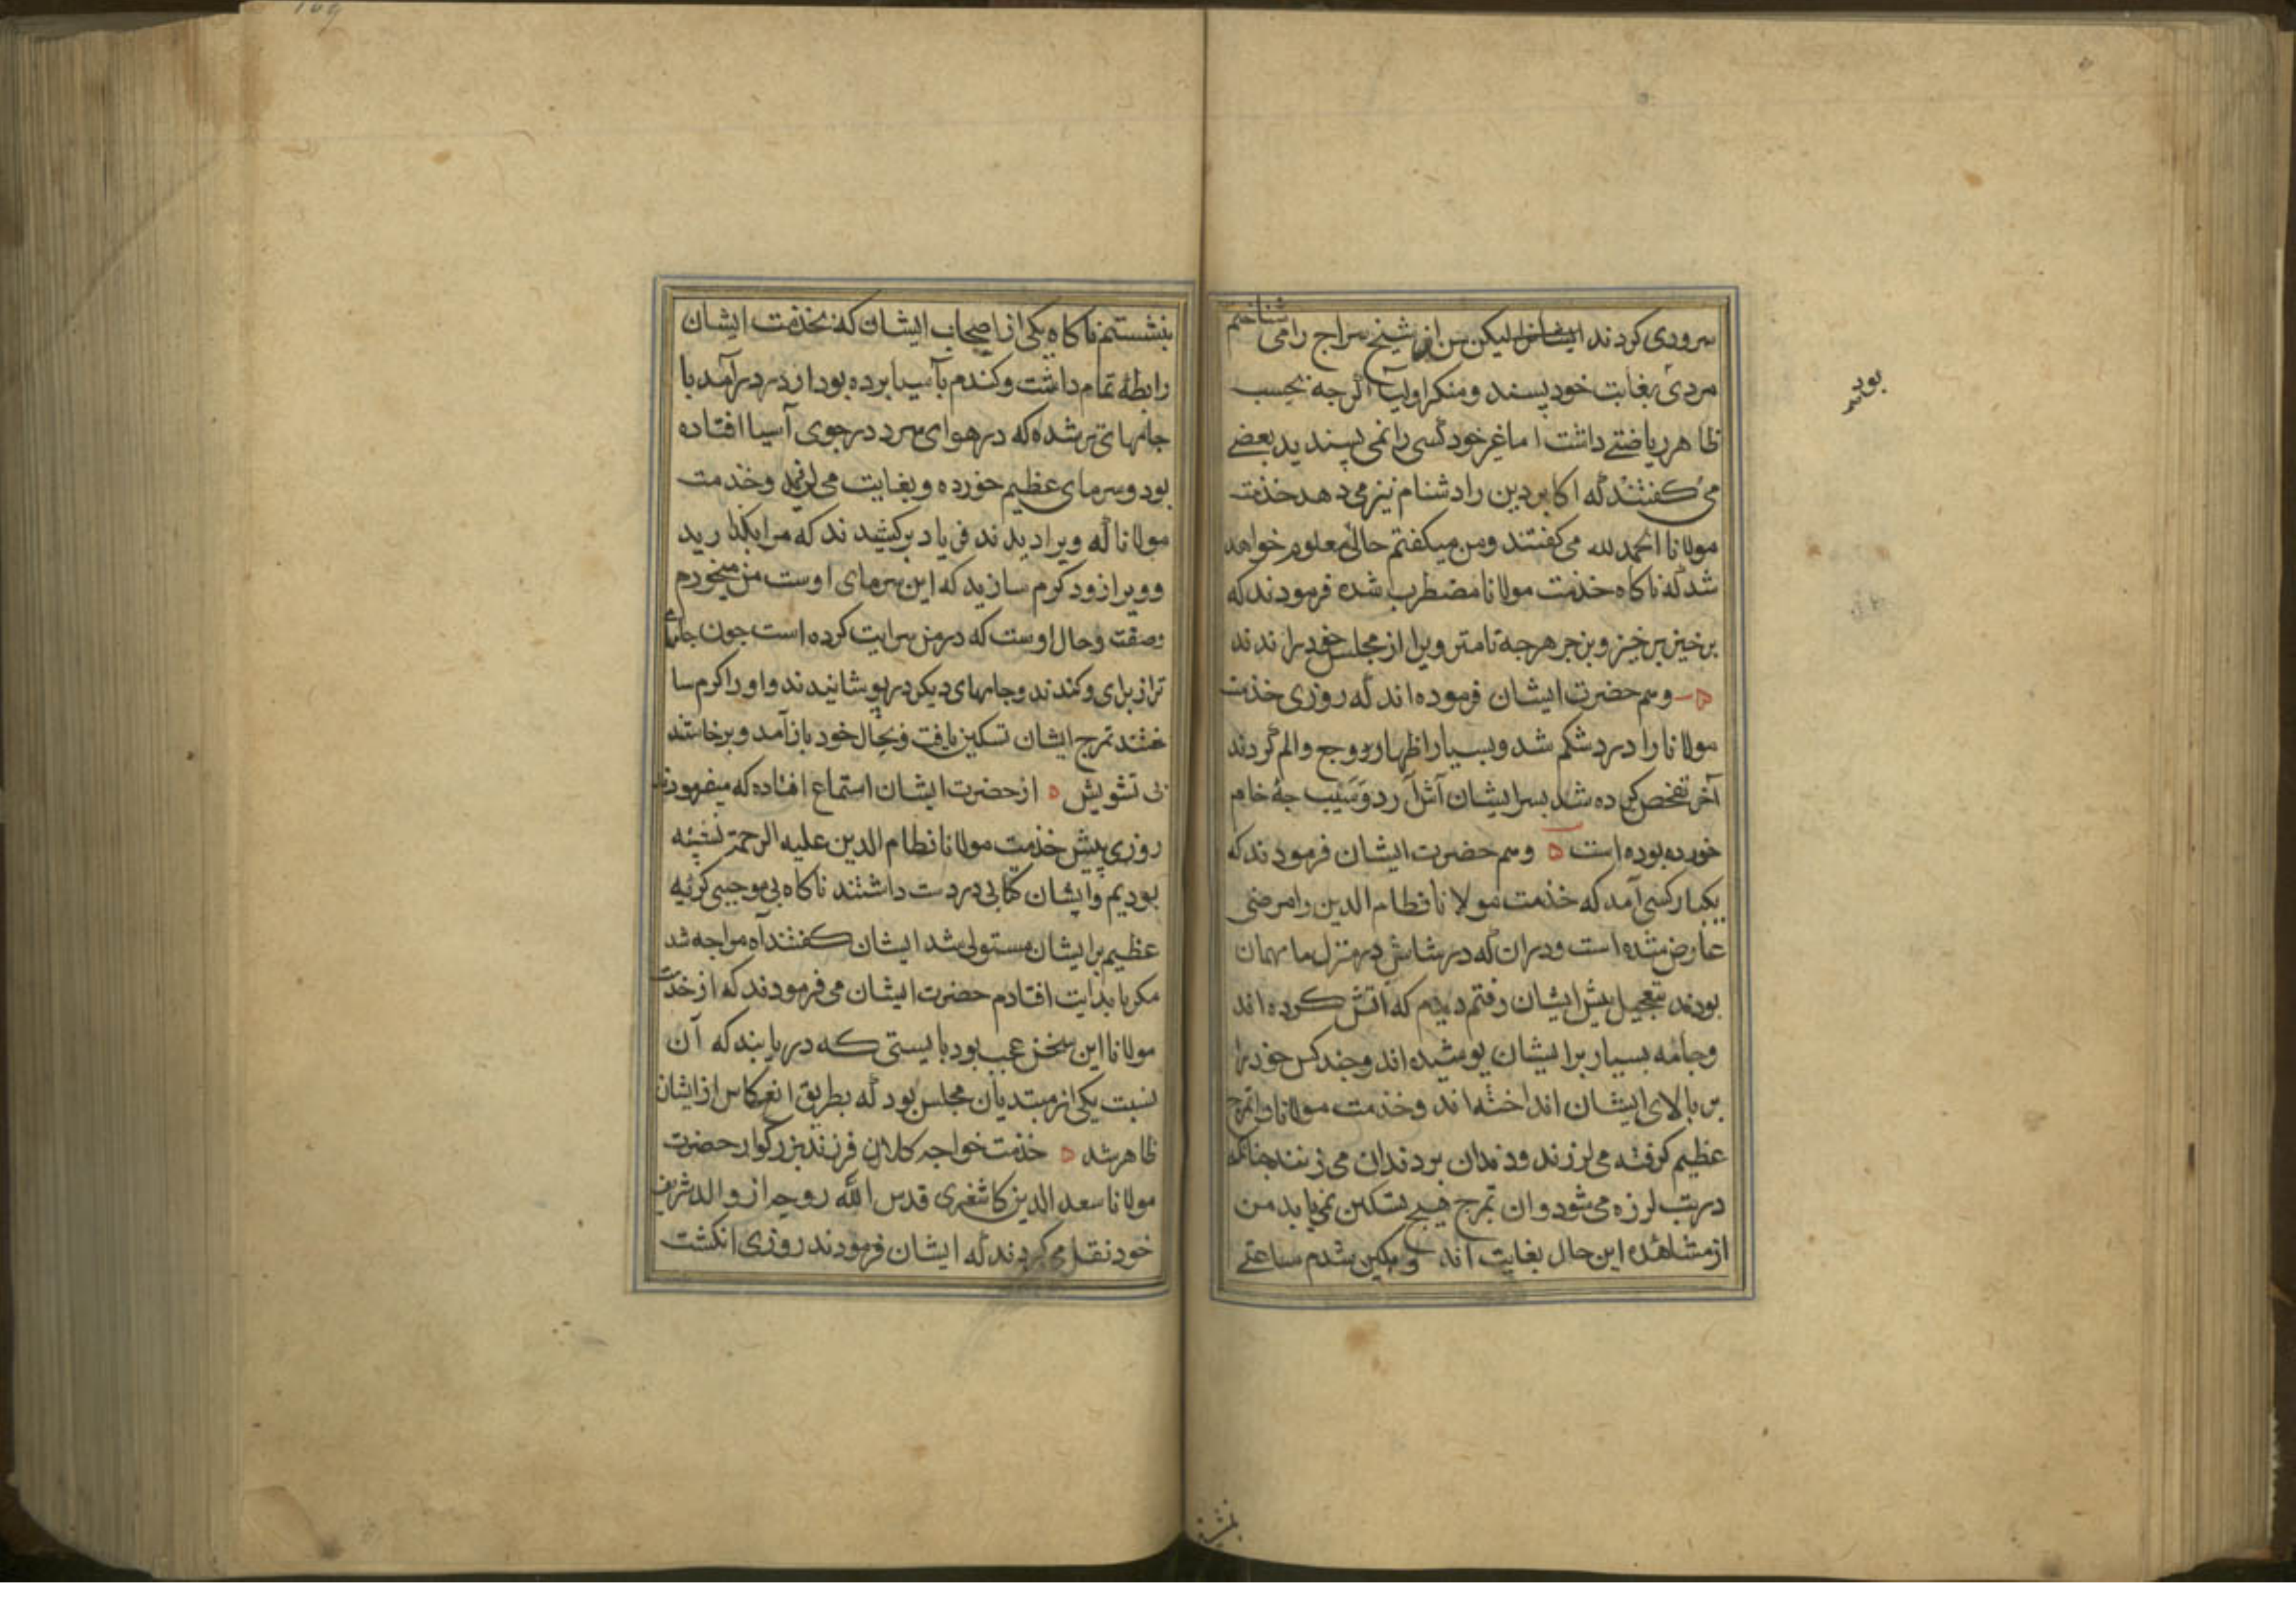 سروری کردند لیکن من از شیخ سراج را می شناختم
مردی بغایت خود پسند و منکر اولیا اگر جه بحسب
بود
ظاهر ریاضتے داشت اما غیر خود کسی را نمی پسندید بعضے
می کفتند که اکابر دین را دشنام نیز می دهد خذمت
مولانا الحمد لله می کفتند و من میکفتم حالی معلوم خواهد
شد که ناکاه خذمت مولانا مضطرب شده فرمودند که
برخیز برخیز و بزجر هرجه تامتر ویرا از مجلس خود براندند
وهم حضرت ایشان فرموده اند که روزی خذمت
مولانا را درد شکم شد و بسیار اظهار وجع و الم کردند
آخر تفخص کرده شد بسر ایشان آش آرد و سیب جهٔ خام
خورده بوده است وهم حضرت ایشان فرمودند که
یکبار کسی آمد که خذمت مولانا نظام الدین را مرضی
عارض شده است و دران که در شاش در منزل ما مهمان
بودند بتعجیل پیش ایشان رفتم دیدم که آتش کرده اند
و جامه بسیار بر ایشان پوشیده اند و جند کس خود را
بر بالای ایشان انداخته اند و خذمت مولانا را تمرج
عظیم کرفته می لرزند و دندان بر دندان می زنند جنانکه
در تب لرزه می شود و ان تمرج هیج تسکین نمی یابد من
از مشاهده این حال بغایت اندوهکین شدم ساعتے
بنشستم
بنشستم ناکاه یکی از اصحاب ایشان که بخذمت ایشان
رابطهٔ تمام داشت و کندم بآسیا برده بود از در درآمد با
جامهای تر شده که در هوای سرد در جوی آسیا افتاده
بود و سرمای عظیم خورده و بغایت می لرزید و خذمت
مولانا که ویرا دیدند فریاد برکشیدند که مرا بکذارید
و ویرا زود کرم سازید که این سرمای اوست من میخورم
وصفت و حال اوست که در من سرایت کرده است جون جامهٔ
تر از برای و کندند و جامهای دیکر درپوشانیدند و او را کرم سا
ختند تمرج ایشان تسکین یافت و بحال خود باز آمد و برخاستند
بی تشویش از حضرت ایشان استماع افتاده که میفرمودند
روزی پیش خذمت مولانا نظام الدین علیه الرحمة نشسته
بودیم و ایشان کتابی در دست داشتند ناکاه بی موجبی کریه
عظیم بر ایشان مستولی شد ایشان کفتند آه مرا جه شد
مکر بابدایت افتادم حضرت ایشان می فرمودند که از خذمت
مولانا این سخن عجب بود بایستی که دریابند که آن
نسبت یکی از مبتدیان مجلس بود که بطریق انعکاس از ایشان
ظاهر شد خذمت خواجه کلان فرزند بزرکوار حضرت
مولانا سعد الدین کاشغری قدس الله روحه از والد شریف
خود نقل می کردند که ایشان فرمودند روزی انکشت